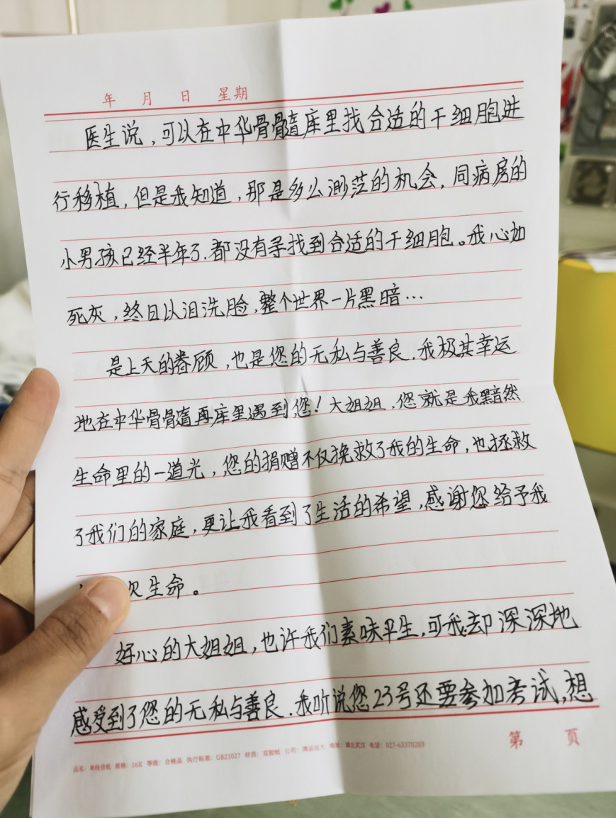 年 月 日 星期
医生说，可以在中华骨髓库里找合适的干细胞进
行移植，但是我知道，那是多么渺茫的机会，同病房的
小男孩已经半年了，都没有寻找到合适的干细胞。我心如
死灰，终日以泪洗脸，整个世界一片黑暗…
是上天的眷顾，也是您的无私与善良，我极其幸运
地在中华骨髓再库里遇到您！大姐姐，您就是我黯然
生命里的一道光，您的捐赠不仅挽救了我的生命，也拯救
了我们的家庭，更让我看到了生活的希望，感谢您给予我
次生命。
好心的大姐姐，也许我们素味平生，可我却深深地
感受到了您的无私与善良，我听说您23号还要参加考试，想
第 页